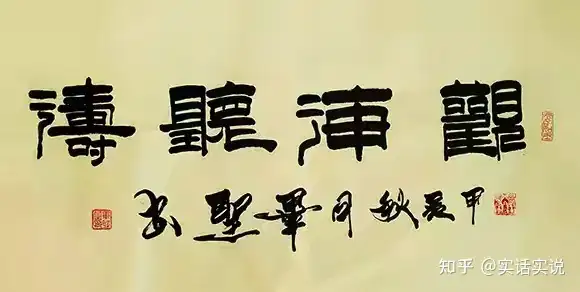 觀海聽濤
甲辰秋月畢聖书
知乎 @实话实说